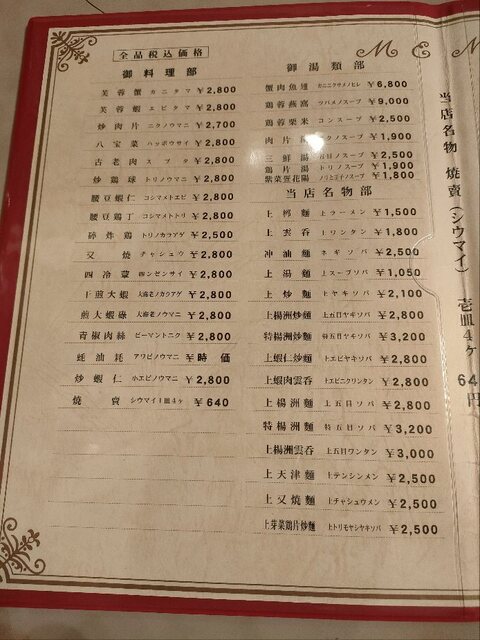 MEN
全品税込価格
御料理部
芙蓉蟹 カニタマ ¥2,800
芙蓉蝦 エビタマ ¥2,800
炒肉片 ニクノウマニ ¥2,700
八宝菜 ハッポウサイ ¥2,800
古老肉 スブタ ¥2,800
炒鶏球 トリノウマニ ¥2,800
腰豆蝦仁 コシマメトエビ ¥2,800
腰豆鶏丁 コシマメトトリ ¥2,800
砕炸鶏 トリノカラアゲ ¥2,500
叉焼 チャシュウ ¥2,800
四冷葷 ゼンサイ ¥2,800
干煎大蝦 大海老ノカラアゲ ¥2,800
煎大蝦碌 大海老ノウマニ ¥2,800
青椒肉絲 ピーマントニク ¥2,800
蚝油 アワビノウマニ ¥時価
炒蝦仁 小エビノウマニ ¥2,800
焼賣 シウマイ1皿4ヶ ¥640
御湯類部
蟹肉魚翅 カニニクサメノヒレ ¥6,800
鶏蓉燕窩 ツバメノスープ ¥9,000
鶏蓉粟米 コンスープ ¥2,500
肉片湯 ニクノスープ ¥1,900
三鮮湯 五目ノスープ ¥2,500
鶏片湯 トリノスープ ¥1,900
紫菜蛋花湯 ノリと玉子ノスープ ¥1,800
当店名物部
上柳麺 上ラーメン ¥1,500
上雲呑 上ワンタン ¥1,800
冲油麺 ネギソバ ¥2,500
上湯麺 上スープソバ ¥1,050
上炒麺 上ヤキソバ ¥2,100
上揚洲炒麺 上五目ヤキソバ ¥2,800
特揚洲炒麺 特五目ヤキソバ ¥3,200
上蝦仁炒麺 上エビヤキソバ ¥2,800
上蝦肉雲呑 上エビニクワンタン ¥2,800
上揚洲麺 上五目ソバ ¥2,800
特揚洲麺 特五目ソバ ¥3,200
上揚洲雲呑 上五目ワンタン ¥3,000
上天津麺 上テンシンメン ¥2,500
上叉焼麺 上チャシュウメン ¥2,500
上芽菜鶏片炒麺 上トリモヤシヤキソバ ¥2,500
当店名物 焼賣(シウマイ) 壱皿4ヶ 64
円